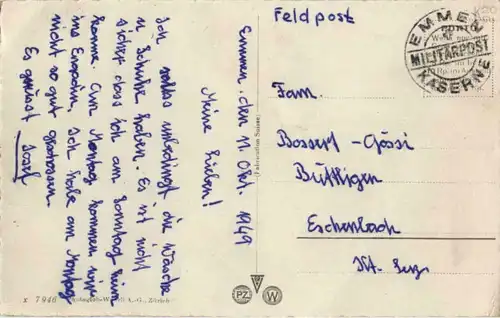 Emmen, den 11. Okt. 1949
Meine Lieben!
Ich sollte unbedingt die Wäsche
u Schuhe haben. Es ist nicht
sicher dass ich am Sonntag heim
komme. Am Montag kommen wir
ins Engadin. Ich habe am Montag
nicht so gut geschossen.
Es grüsst Josef
x 7946
(Fabrication Suisse)
PZ
W
Feldpost
EMMEN
MILITÄRPOST
KASERNE
Fam.
Bossert-Gössi
Büttligen
Eschenbach
Kt. Luz.